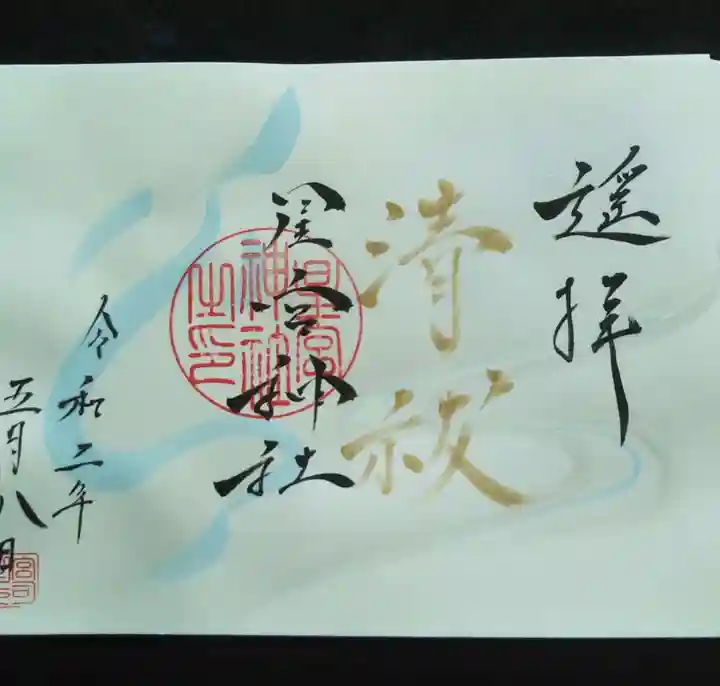 遥拝
清祓
星宮神社
星宮
神社
之印
令和二年
五月八日
宮司